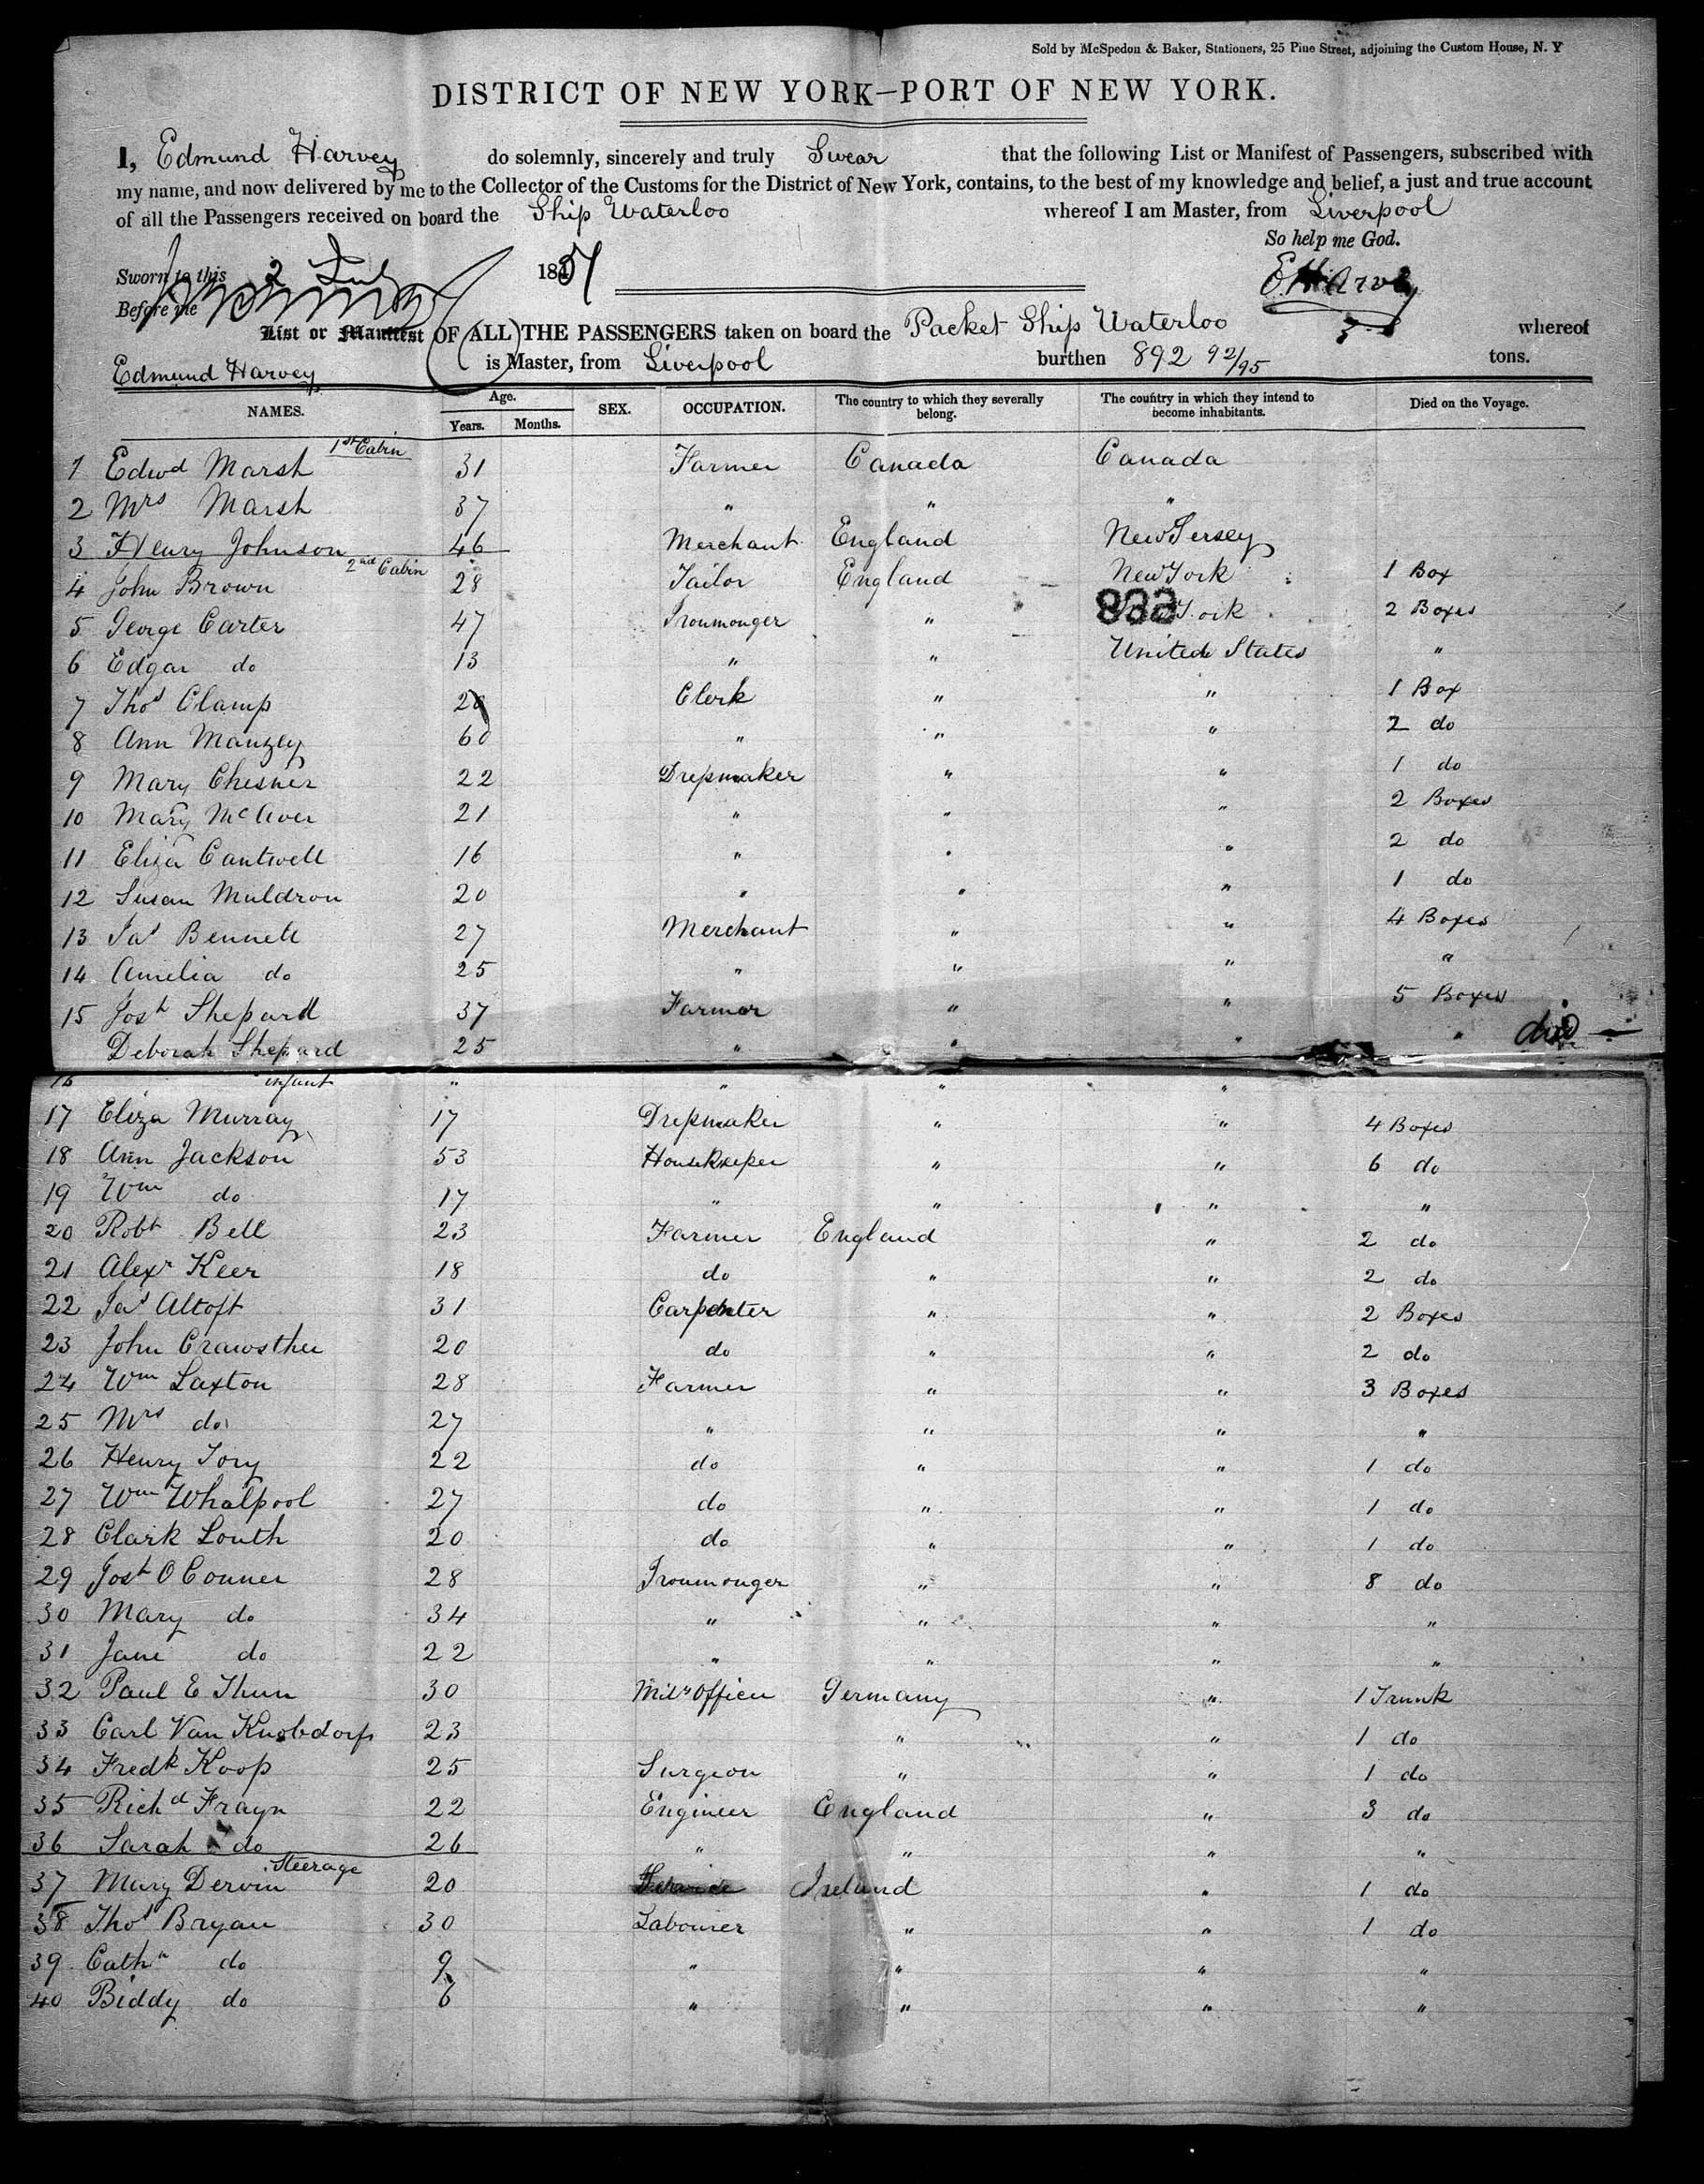 Sold by McSpedon & Baker, Stationers, 25 Pine Street, adjoining the Custom House, N. Y
DISTRICT OF NEW YORK—PORT OF NEW YORK.
I, Edmund Harvey do solemnly, sincerely and truly Swear that the following List or Manifest of Passengers, subscribed with
my name, and now delivered by me to the Collector of the Customs for the District of New York, contains, to the best of my knowledge and belief, a just and true account
of all the Passengers received on board the Ship Waterloo whereof I am Master, from Liverpool
So help me God.
Sworn to this 2 July 1851
E Harvey
Before me
List or Manifest OF ALL THE PASSENGERS taken on board the Packet Ship Waterloo whereof
Edmund Harvey is Master, from Liverpool burthen 892 92/95 tons.
NAMES. Age. Years. Months. SEX. OCCUPATION. The country to which they severally belong. The country in which they intend to become inhabitants. Died on the Voyage.
1st Cabin
1 Edwd Marsh 31 Farmer Canada Canada
2 Mrs Marsh 37 " " "
3 Henry Johnson 46 Merchant England New Jersey
2nd Cabin
4 John Brown 28 Tailor England New York 1 Box
5 George Carter 47 Ironmonger " New York 2 Boxes
888
6 Edgar do 13 " " United States "
7 Thos Clamp Clerk " " 1 Box
8 Ann Manzley 60 " " " 2 do
9 Mary Chesner 22 Dressmaker " " 1 do
10 Mary McAver 21 " " " 2 Boxes
11 Eliza Cantwell 16 " " " 2 do
12 Susan Muldron 20 " " " 1 do
13 Jas Bennett 27 Merchant " " 4 Boxes
14 Amelia do 25 " " " "
15 Josh Shepard 37 Farmer " " 5 Boxes
Deborah Shepard 25 " " " " died
16 infant " " " "
17 Eliza Murray 17 Dressmaker " " 4 Boxes
18 Ann Jackson 53 Housekeeper " " 6 do
19 Wm do 17 " " " "
20 Robt Bell 23 Farmer England " 2 do
21 Alexr Keer 18 do " " 2 do
22 Jas Altoft 31 Carpenter " " 2 Boxes
23 John Crawsther 20 do " " 2 do
24 Wm Laxton 28 Farmer " " 3 Boxes
25 Mrs do 27 " " " "
26 Henry Tory 22 do " " 1 do
27 Wm Whalpool 27 do " " 1 do
28 Clark Louth 20 do " " 1 do
29 Josh O Conner 28 Ironmonger " " 8 do
30 Mary do 34 " " " "
31 Jane do 22 " " " "
32 Paul E Thun 30 Mily Officer Germany " 1 Trunk
33 Carl Van Knobdorf 23 " " 1 do
34 Fredk Koop 25 Surgeon " " 1 do
35 Richd Frayn 22 Engineer England " 3 do
36 Sarah do 26 " " " "
Steerage
37 Mary Dervin 20 Ireland " 1 do
38 Thos Bryan 30 Labourer " " 1 do
39 Cathn do 9 " " " "
40 Biddy do 6 " " " "